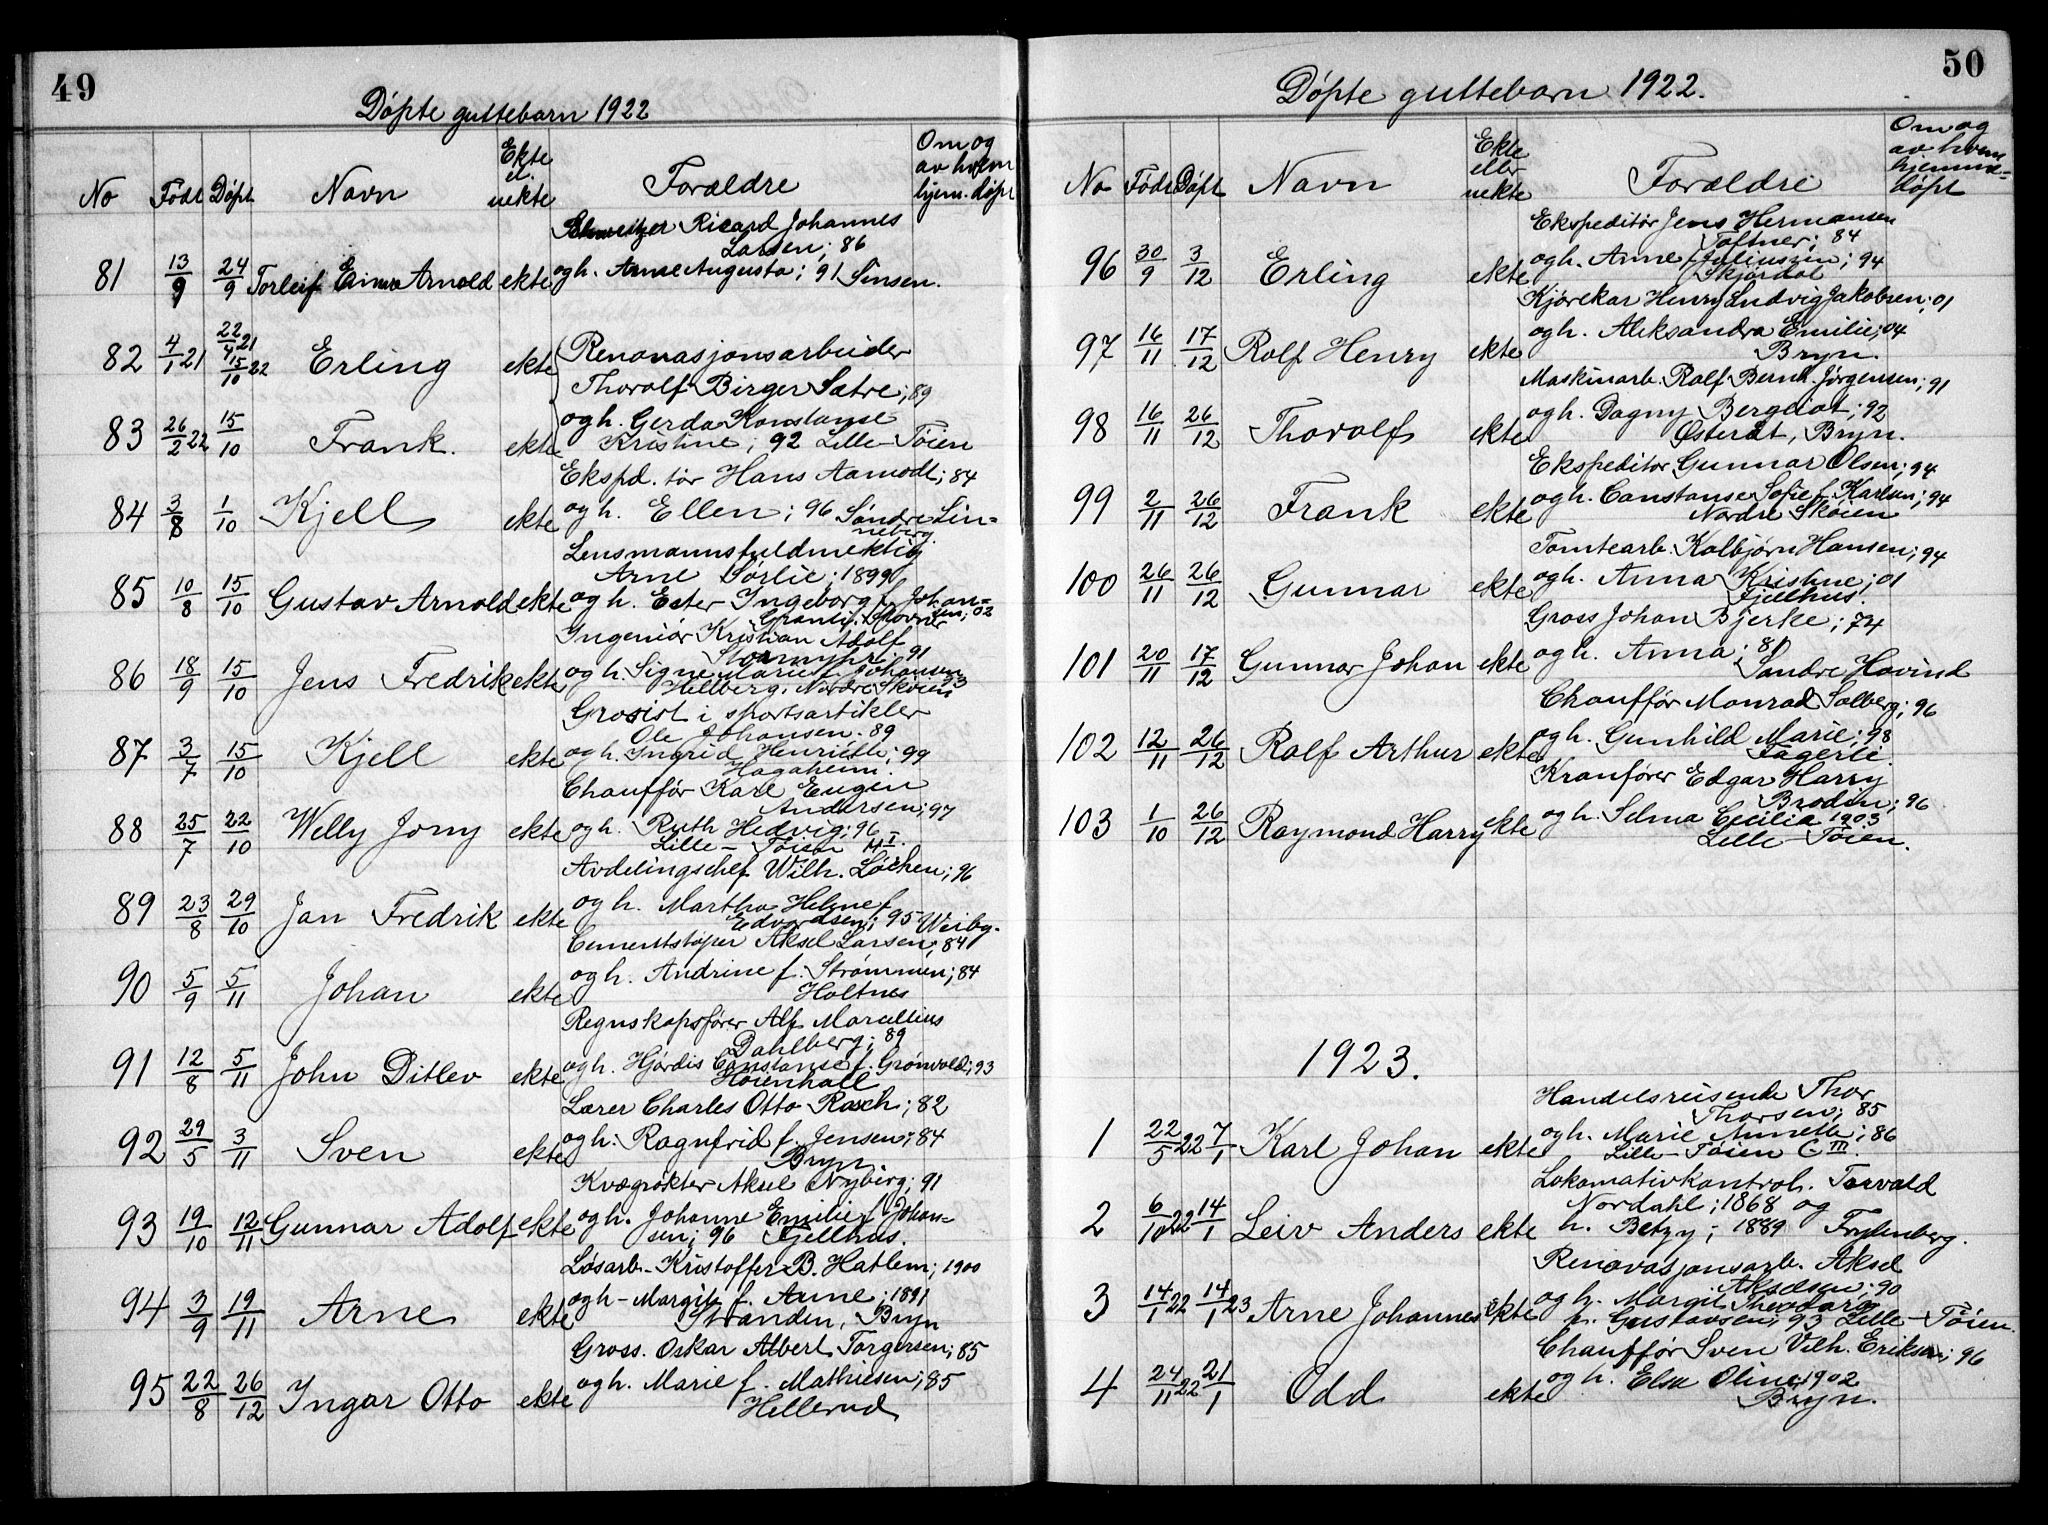 49
Døpte guttebarn 1922
No Født Døpt Navn Ekte el. uekte Forældre Om og av hvem hjem. døpt
Ricard Johannes
Larsen; 86
81 13/9 24/9 Torleif Einar Arnold ekte og h. Anne Augusta; 91 Sinsen.
82 4/1 21 22/4 21 15/10 22 Erling ekte Renovasjonsarbeider
Thorolf Birger Sætre; 89
83 26/2 22 15/10 Frank. ekte og h. Gerda Konstanse
Kristine; 92 Lille-Tøien
Ekspd. tør Hans Aamodt; 84
84 3/8 1/10 Kjell ekte og h. Ellen; 96 Søndre Lin=
neberg.
Lensmannsfuldmektig
Arne Sørlie; 1899
85 10/8 15/10 Gustav Arnold ekte og h. Ester Ingeborg f. Johan=
sen; 02
Ingeniør Kristian Adolf
Stormyhr. 91
86 18/9 15/10 Jens Fredrik ekte og h. Signe Marie f. Johansen
Hellberg. Nordre Skøien
Grosist i sportsartikler
Ole Johansen. 89
87 3/7 15/10 Kjell ekte og h. Ingrid Henriette; 99
Hagaheim.
Chauffør Karl Eugen
Andersen; 97
88 25/7 22/10 Welly Jony ekte og h. Ruth Hedvig; 96
Lille-Tøien H I.
Avdelingschef Wilh. Løchen; 96
89 23/8 29/10 Jan Fredrik ekte og h. Martha Helene f.
Edvardsen; 95 Weiby.
Cementstøper Aksel Larsen; 84
90 5/9 5/11 Johan ekte og h. Andrine f. Strømmen; 84
Holtnes
Regnskapsfører Alf Marcellius
Dahlberg; 89
91 12/8 5/11 John Ditlev ekte og h. Hjørdis Constanse f. Grønvold; 93
Høienhall
Lærer Charles Otto Rasch; 82
92 29/5 3/11 Sven ekte og h. Ragnfrid f. Jensen; 84
Bryn
Kvægrøkter Aksel Nyberg; 91
93 19/10 12/11 Gunnar Adolf ekte og h. Johanne Emilie f. Johan=
sen; 96 Fjellhus.
Løsarb. Kristoffer B. Hatlem; 1900
94 3/9 19/11 Arne ekte og h - Margit f. Aune; 1891
Stranden, Bryn
Gross. Oskar Albert Torgersen; 85
95 22/8 26/12 Ingar Otto ekte og h. Marie f. Mathiesen; 85
Hellerud
50
Døpte guttebarn 1922.
No Født Døpt Navn Ekte eller uekte Forældre Om og av hvem hjemme=døpt
Ekspeditør Jens Hermansen
Toftner; 84
96 30/9 3/12 Erling ekte og h. Anne f. Juliussen; 94
Skjørdal
Kjørekar Henry Ludvig Jakobsen; 01
97 16/11 17/12 Rolf Henry ekte og h. Aleksandra Emilie; 04
Bryn.
Maskinarb. Rolf Bernh. Jørgensen; 91
98 16/11 26/12 Thorolf ekte og h. Dagny Bergliot; 92
Østerdt, Bryn.
Ekspeditør Gunnar Olsen; 94
99 2/11 26/12 Frank ekte og h. Constanse Sofie f. Karlsen; 94
Nordre Skøien
Tomtearb. Kolbjørn Hansen; 94
100 26/11 26/12 Gunnar ekte og h. Anna Kristine; 01
Fjellhus.
Gross Johan Bjerke; 74
101 20/11 17/12 Gunnar Johan ekte og h. Anna; 81
Søndre Hovind
Chauffør Monrad Solberg; 96
102 12/11 26/12 Rolf Arthur ekte og h. Gunhild Marie; 98
Fagerli.
Kranfører Edgar Harry
Brodin; 96
103 1/10 26/12 Raymond Harry ekte og h. Selma Cecilia 1903
Lille-Tøien.
1923.
Handelsreisende Thor
Thorsen; 85
1 22/5 22 7/1 Karl Johan ekte og h. Marie Annette; 86
Lille-Tøien C III.
Lokomotivkontrol. Torvald
Nordahl; 1868 og
2 6/10 22 14/1 Leiv Anders ekte h. Betzy; 1889 Frydenberg.
Renovasjonsarb. Aksel
Akselsen; 90
3 14/1 22 14/1 23 Arne Johannes ekte og h. Margit Theodora
f. Gustavsen; 93 Lille-Tøien.
Chauffør Sven Vilh. Eriksen; 96
4 24/11 22 21/1 Odd ekte og h. Elsa Oline 1902
Bryn.